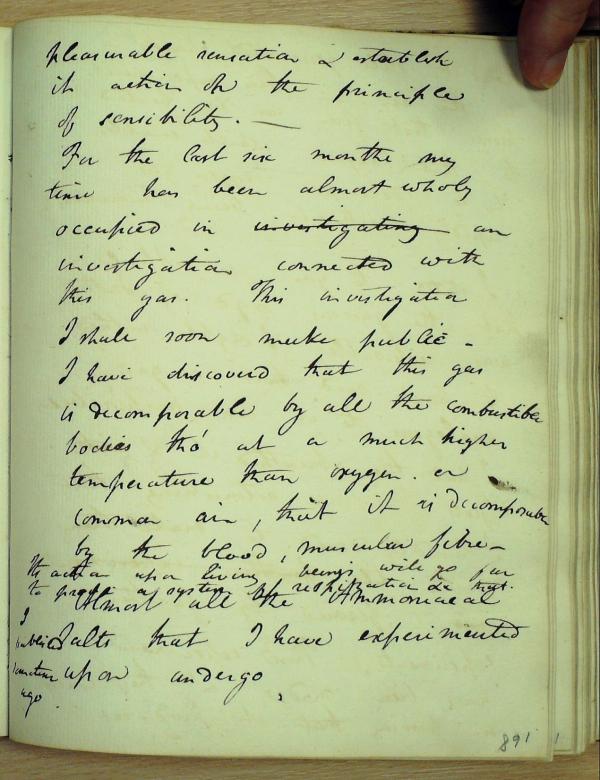 pleasurable sensation & establish
it action on the principle
of sensibility. —
For the last six months my
time has been almost wholy
occupied in investigating an
investigation connected with
this gas. This investigation
I shall soon make public -
I have discoverd that this gas
is decomposable by all the combustible
bodies tho' at a much higher
temperature than oxygen. or
common air, that it is decomposable
by the blood, muscular fibre -
Its action upon living beings will go far
to prove a system of respiration &c that
I
published
sometime
ago.
Almost all the Ammoniacal
Salts that I have experimented
upon undergo
891